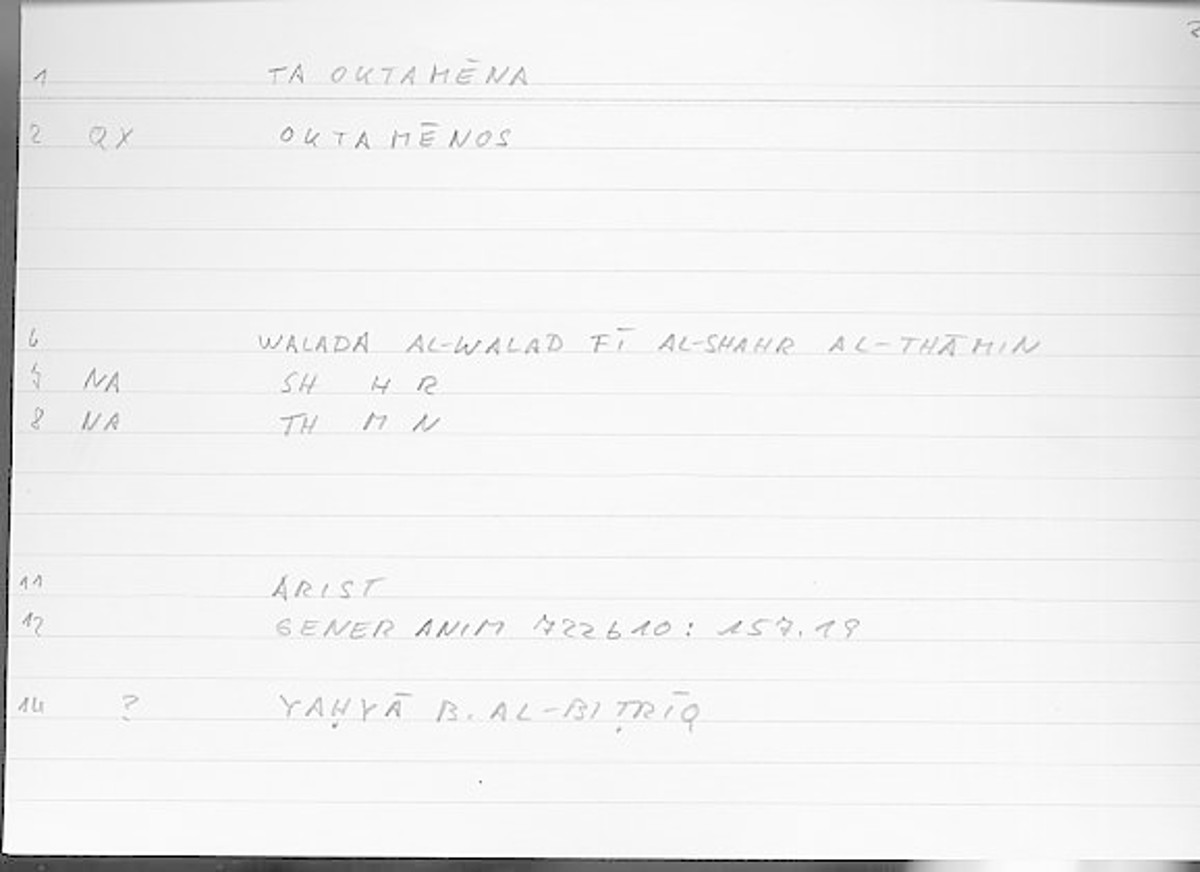 1 TA OKTAMĒNA
2 QX OKTAMĒNOS
6 WALADA AL-WALAD FĪ AL-SHAHR AL-THĀMIN
7 NA SH H R
8 NA TH M N
11 ARIST
12 GENER ANIM 722b10: 157.19
14 ? YAḤYĀ B. AL-BIṬRĪQ